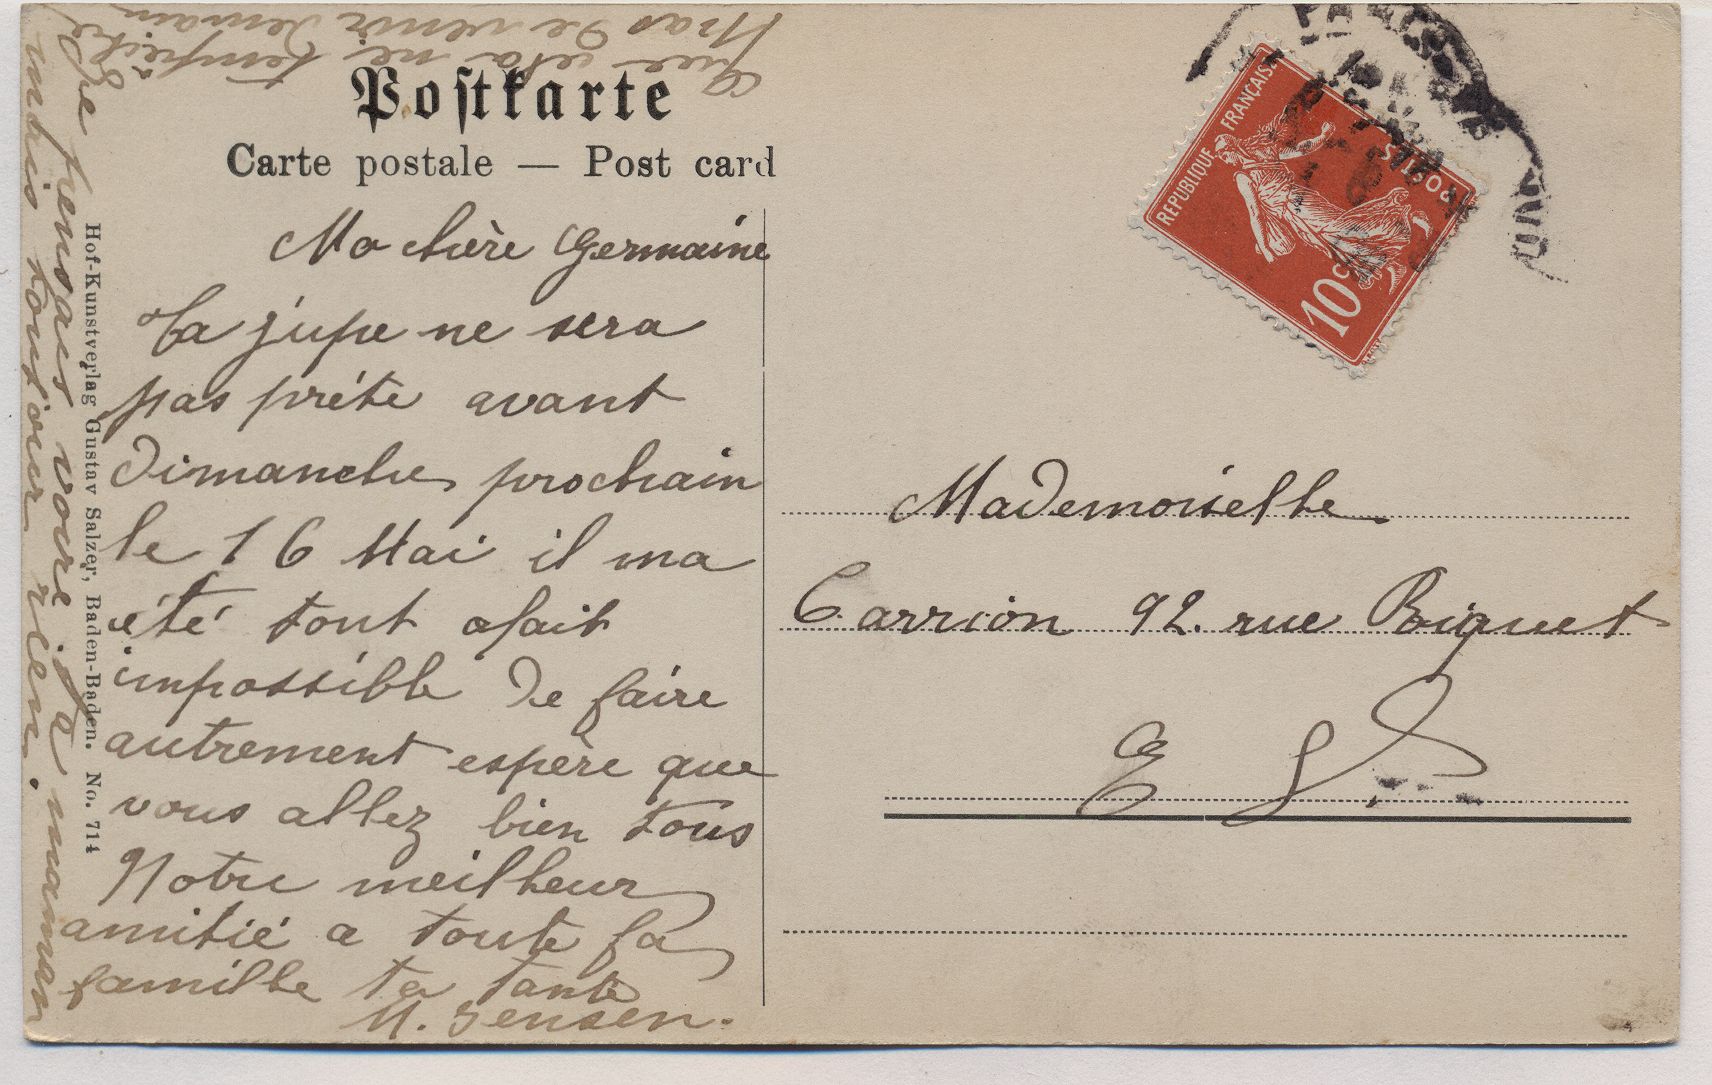 Postkarte
Carte postale — Post card
Ma chère Germaine
Ta jupe ne sera
pas prête avant
dimanche prochain
le 16 Mai il ma
été tout afait
impossible de faire
autrement espère que
vous allez bien tous
Notre meilleur
amitié a toute la
famille ta tante
M. Jensen.
Je pensais voire ta maman
mais tout'oir rien.
Que cela ne tempêche
pas de venir demain
Hof-Kunstverlag Gustav Salzer, Baden-Baden. No. 714
REPUBLIQUE FRANÇAISE
POSTES
10c
PARIS
Mademoiselle
Carrion 92. rue Boiguet
E S